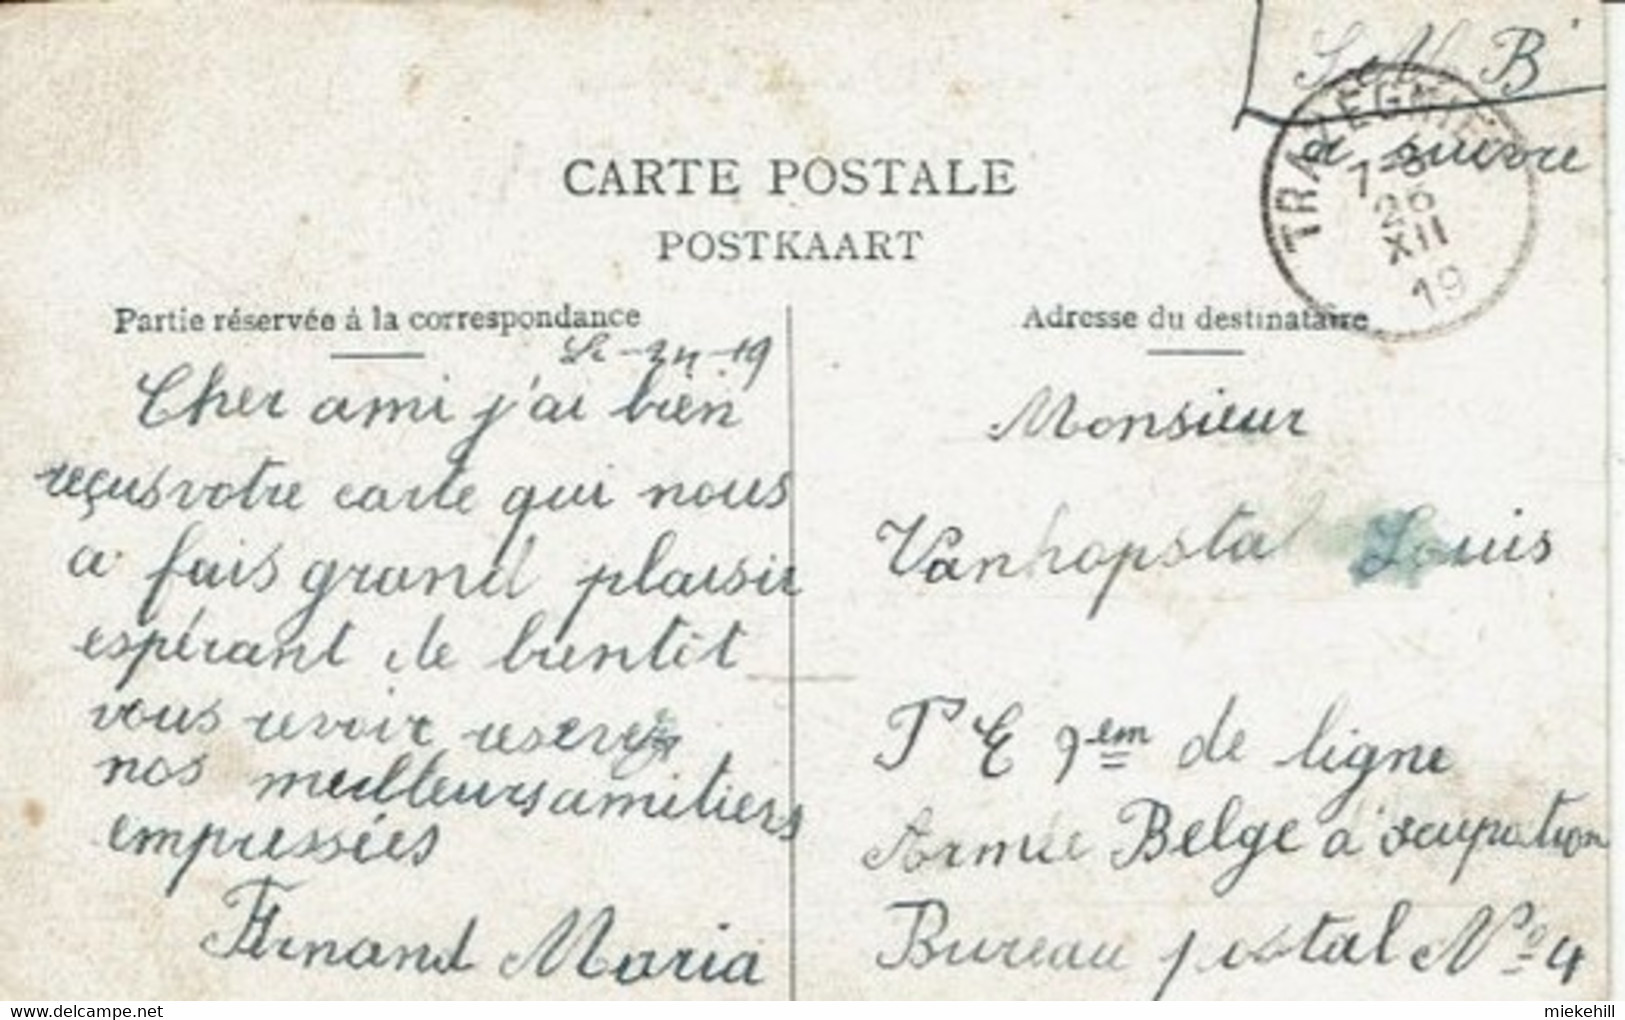 S. M. B
a suivre
TRAZEGNIES
7-8
26
XII
19
CARTE POSTALE
POSTKAART
Partie réservée à la correspondance
Adresse du destinataire
Le -24-19
Cher ami j'ai bien
reçus votre carte qui nous
a fais grand plaisir
espérant de bientôt
vous revoir
nos meilleurs amitiers
empressées
Fernand Maria
Monsieur
Vanhopstal Louis
P E 9em de ligne
Armée Belge d'ocupation
Bureau postal No 4
delcampe.net
miekehill